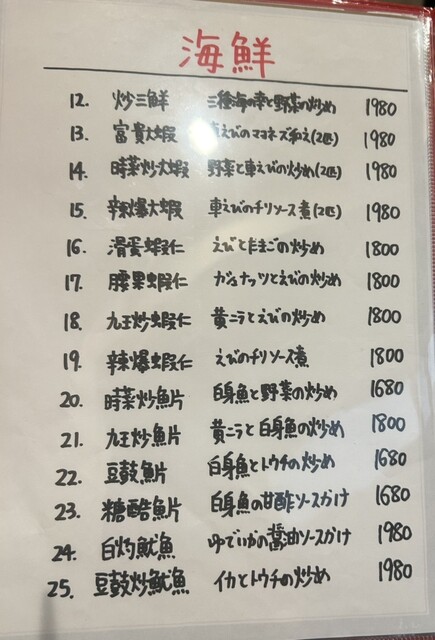 海鮮
12. 炒三鮮 三種海の幸と野菜の炒め 1980
13. 富貴大蝦 車えびのマヨネズ和え(2匹) 1980
14. 時菜炒大蝦 野菜と車えびの炒め(2匹) 1980
15. 辣爆大蝦 車えびのチリソース煮(2匹) 1980
16. 滑蛋蝦仁 えびとたまごの炒め 1800
17. 腰果蝦仁 カシュナッツとえびの炒め 1800
18. 九王炒蝦仁 黄ニラとえびの炒め 1800
19. 辣爆蝦仁 えびのチリソース煮 1800
20. 時菜炒魚片 白身魚と野菜の炒め 1680
21. 九王炒魚片 黄ニラと白身魚の炒め 1800
22. 豆鼓魚片 白身魚とトウチの炒め 1680
23. 糖酷魚片 白身魚の甘酢ソースかけ 1680
24. 白灼魷魚 ゆでいかの醤油ソースかけ 1980
25. 豆鼓炒魷魚 イカとトウチの炒め 1980